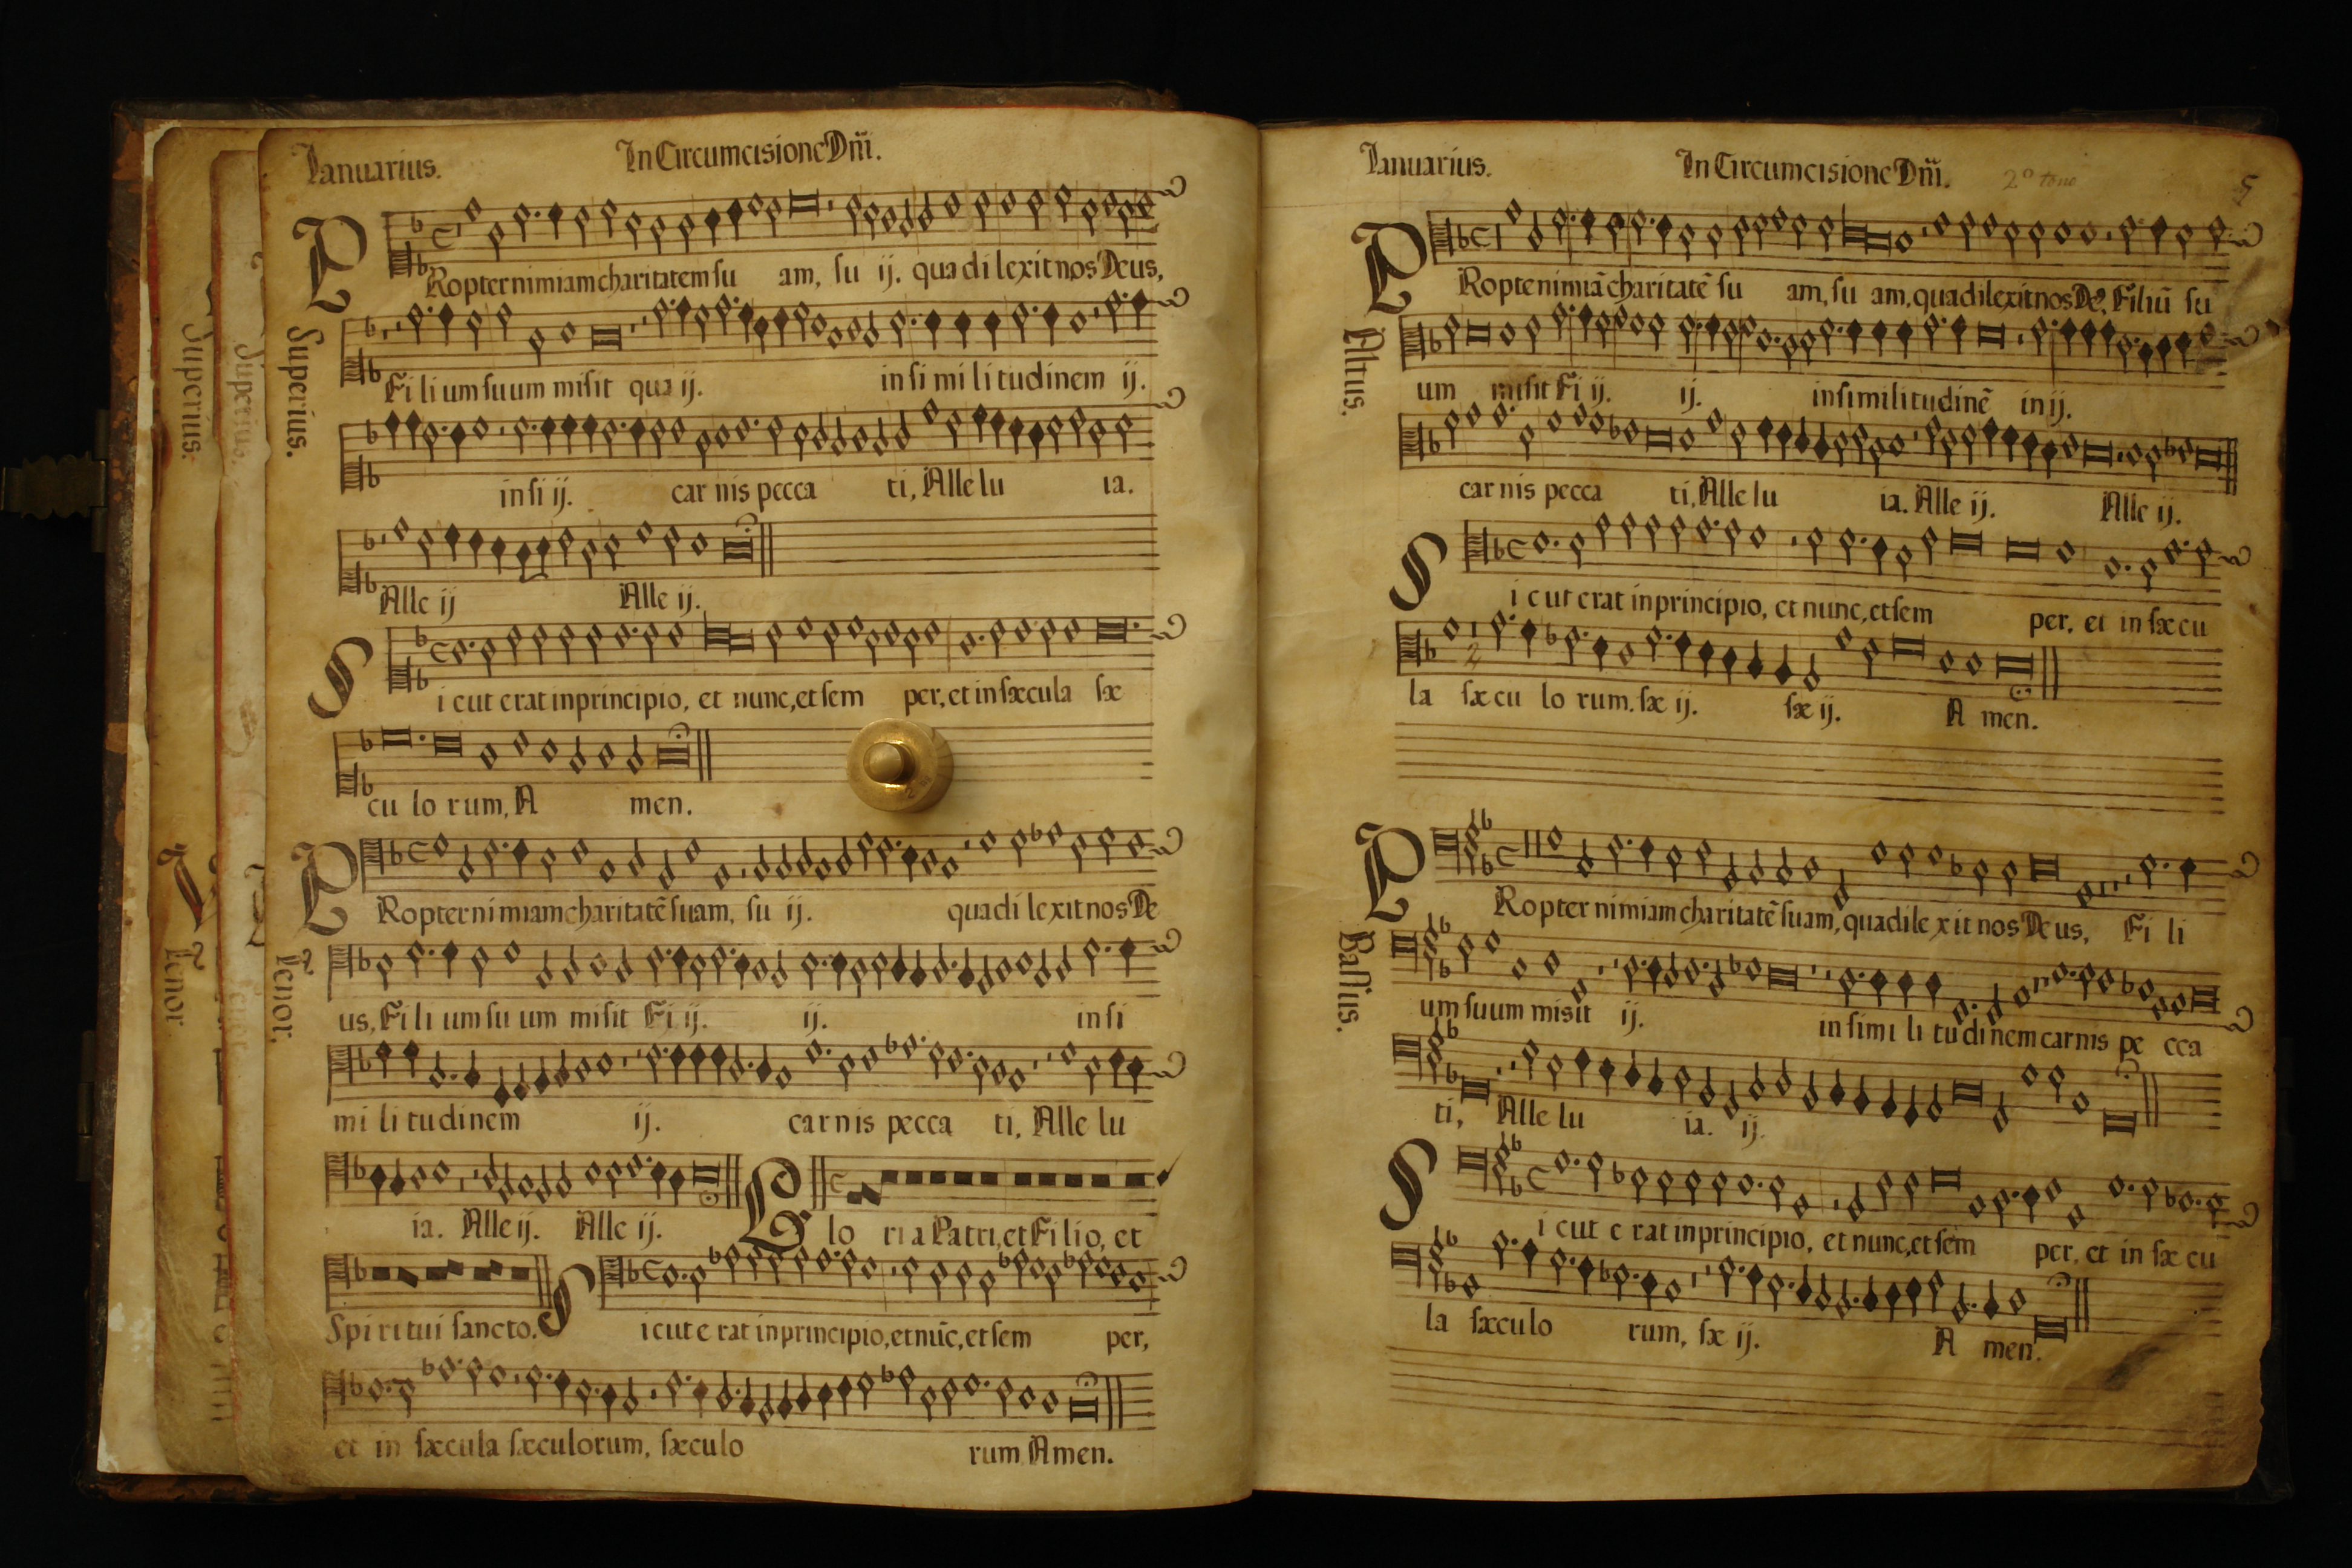 Ianuarius. In Circumcisione Dñi.
PRopter nimiam charitatem su am, su ij. qua di lexit nos Deus,
Superius.
Fi li um suum misit qua ij. in si mi li tudinem ij.
in si ij. car nis pecca ti, Alle lu ia.
Alle ij Alle ij.
Si cut erat in principio, et nunc, et sem per, et in sæcula sæ
cu lo rum, A men.
PRopter ni miam charitatẽ suam, su ij. qua di le xit nos De
Tenor.
us, Fi li um su um misit Fi ij. ij. in si
mi li tudinem ij. car nis pecca ti, Alle lu
ia. Alle ij. Alle ij. Glo ri a Patri, et Filio, et
Spiritui sancto. Si cut e rat in principio, et nũc, et sem per,
et in sæcula sæculorum, sæculo rum Amen.
Superius.
Superius.
Tenor
Ianuarius. In Circumcisione Dñi. 2º tono 5
PRopte nimiã charitatẽ su am, su am, qua dilexit nos De9, Filiũ su
Altus.
um misit Fi ij. ij. in similitudinẽ in ij.
car nis pecca ti, Alle lu ia. Alle ij. Alle ij.
Si cut erat in principio, et nunc, et sem per, et in sæcu
la sæ cu lo rum. sæ ij. sæ ij. A men.
PRopter nimiam charitatẽ suam, qua dile xit nos Deus, Fi li
Bassus.
um suum misit ij. in simi li tu di nem carnis pe cca
ti, Alle lu ia. ij.
Si cut e rat in principio, et nunc, et sem per, et in sæ cu
la sæculo rum, sæ ij. A men.